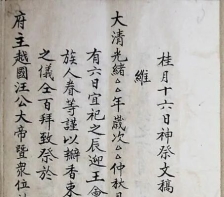 桂月十六日神祭文稿
維
大清光緒△△年歲次△△仲秋月
有六日宜祀之辰迎王會
族人眷等謹以瓣香東
之儀仝百拜致祭於
府主越國汪公大帝暨衆位